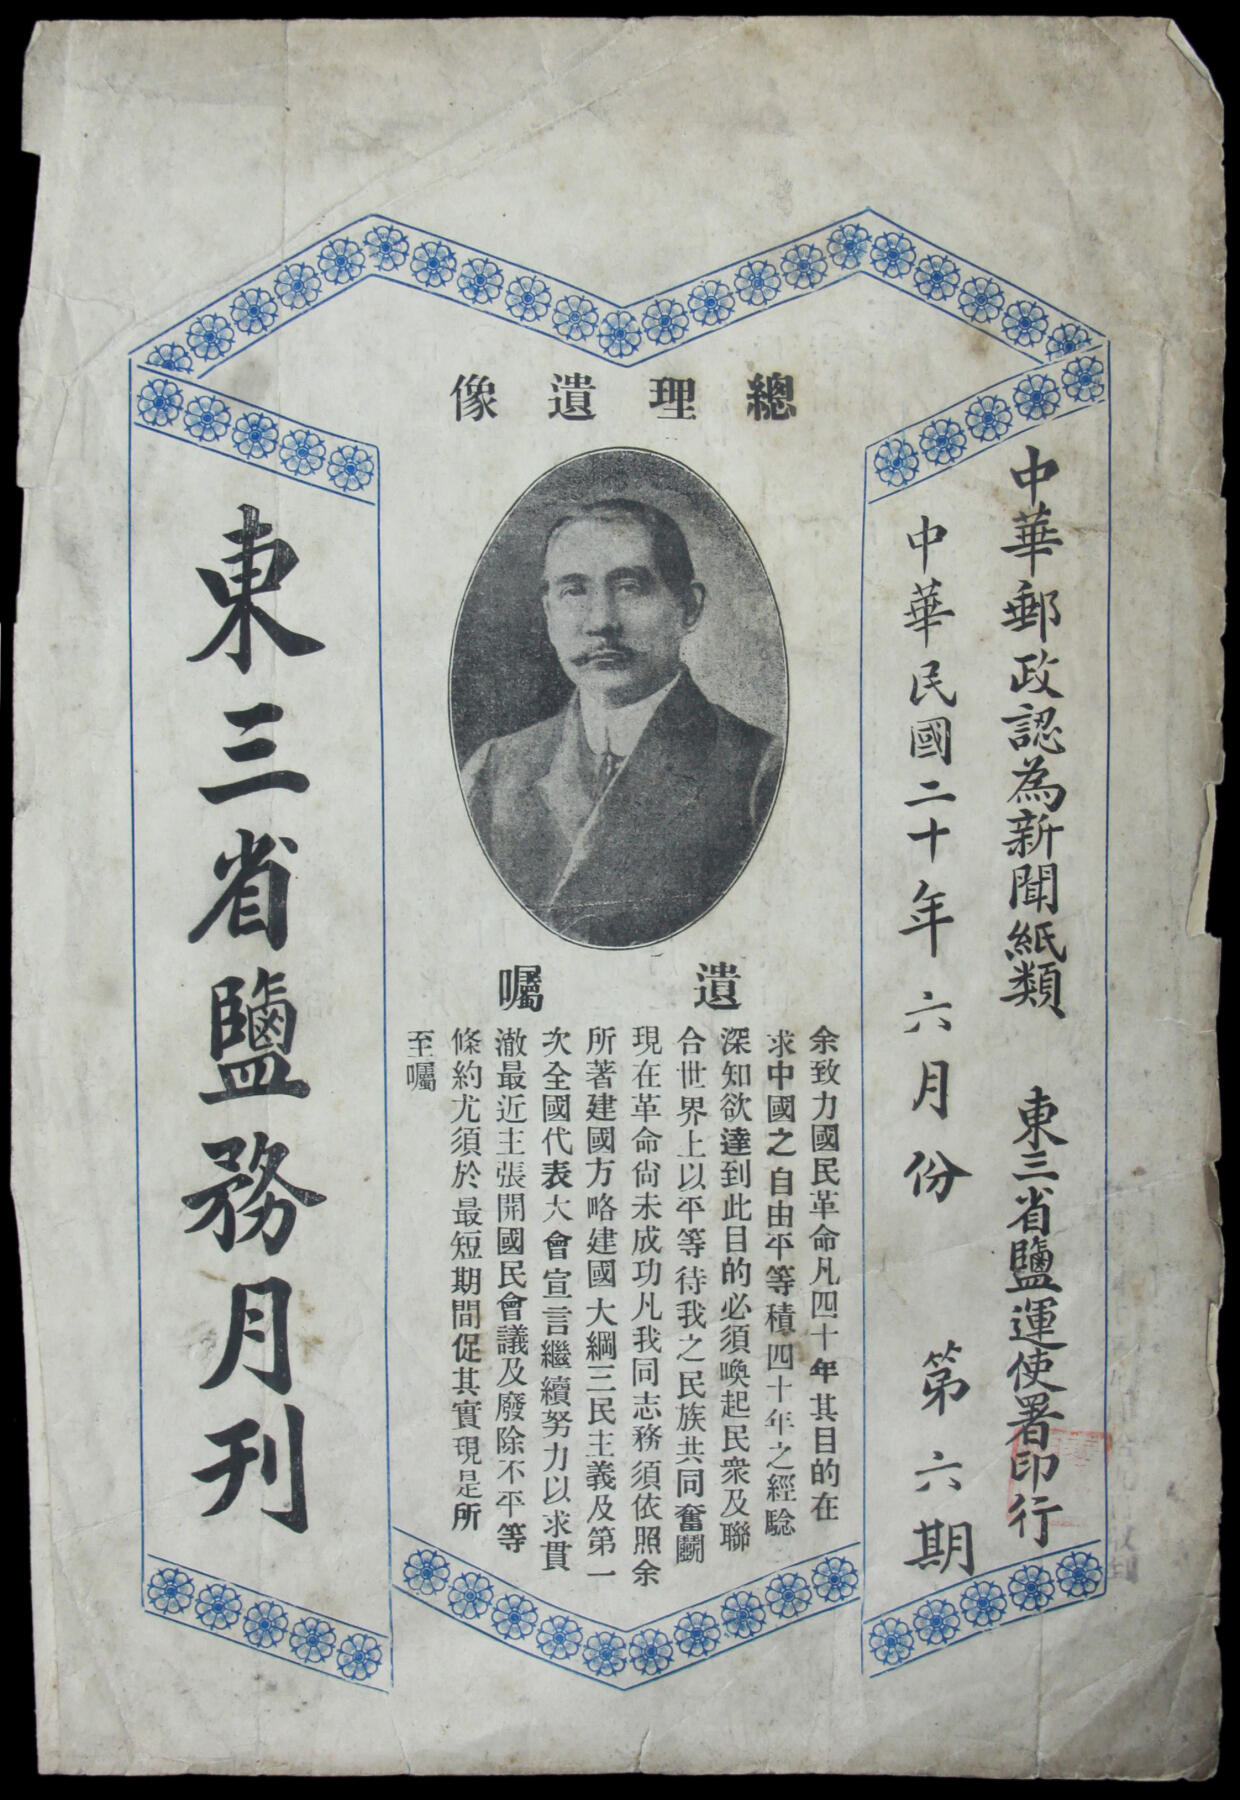 中華郵政認為新聞紙類 東三省鹽運使署印行
中華民國二十年六月份 第六期
總理遺像
遺囑
余致力國民革命凡四十年其目的在
求中國之自由平等積四十年之經驗
深知欲達到此目的必須喚起民衆及聯
合世界上以平等待我之民族共同奮鬭
現在革命尙未成功凡我同志務須依照余
所著建國方略建國大綱三民主義及第一
次全國代表大會宣言繼續努力以求貫
澈最近主張開國民會議及廢除不平等
條約尤須於最短期間促其實現是所
至囑
東三省鹽務月刊